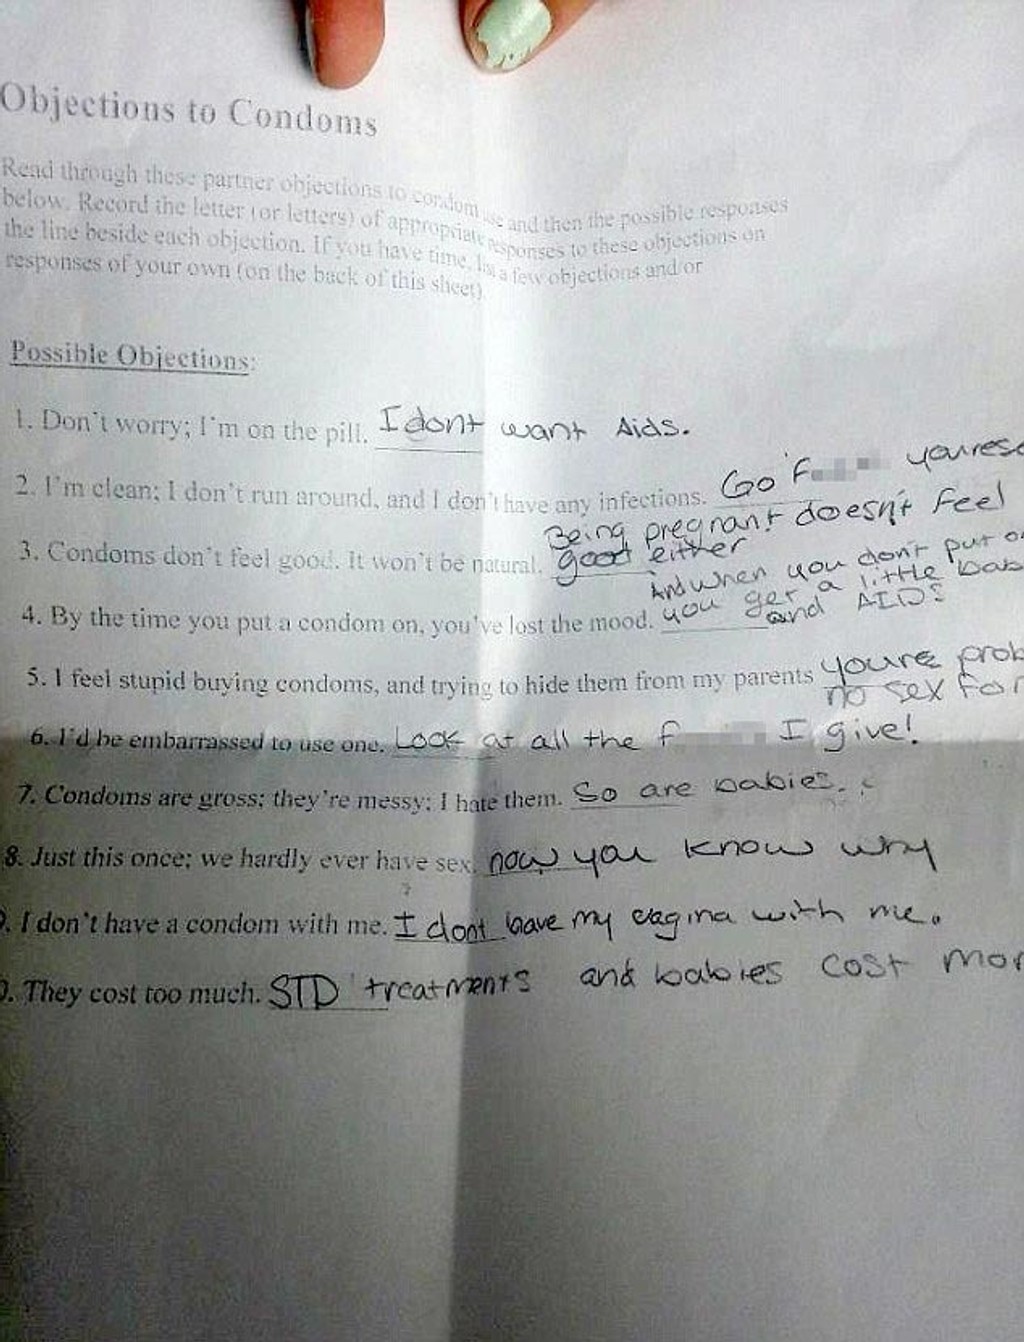 Objections to Condoms
Read through these partner objections to condom use and then the possible responses
below. Record the letter (or letters) of appropriate responses to these objections on
the line beside each objection. If you have time, list a few objections and/or
responses of your own (on the back of this sheet).
Possible Objections:
1. Don't worry; I'm on the pill. I dont want Aids.
2. I'm clean; I don't run around, and I don't have any infections. Go F
Being pregnant doesn't feel
3. Condoms don't feel good. It won't be natural. good either
And when you don't put
4. By the time you put a condom on, you've lost the mood. you get a little
and AIDS
5. I feel stupid buying condoms, and trying to hide them from my parents youre
no sex for
6. I'd be embarrassed to use one. Look at all the f I give!
7. Condoms are gross; they're messy; I hate them. So are babies.
8. Just this once; we hardly ever have sex. now you know why
9. I don't have a condom with me. I dont have my vagina with me.
. They cost too much. STD treatments and babies cost